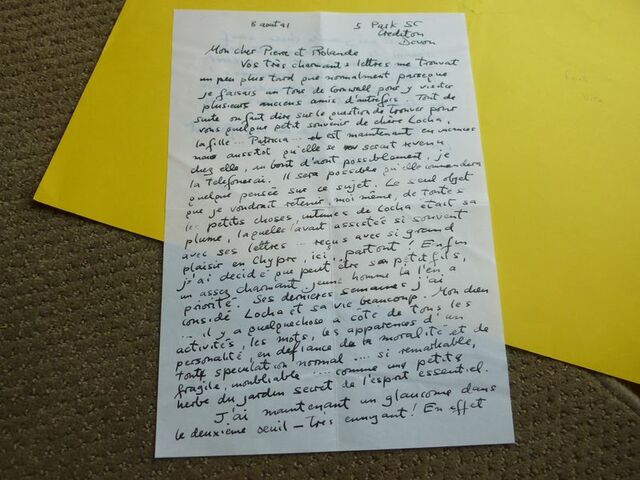 8 août 91 5 Park St
Crediton
Devon
Mon cher Pierre et Rolande
Vos très charmants lettres me trouvat
un peu plus tard que normalment parceque
je faisais un Tour de Cornwall pour y visiter
plusieurs anciens amis d'autrefois. Tout de
suite on fait dire sur le question de trouver pour
vous quelque petit souvenir de chère Locha,
la fille ... Patricia ... est maintenant en vacances
mais aussitot qu'elle se serait revenu
chez elle, au bout d'aout possiblement, je
la Telefonerai. Il sera possible qu'elle commendera
quelque pensée sur ce sujet. Le seul objet
que je voudrait retenir, moi même, de toutes
les petits choses, intimes de Locha était sa
plume, laquelle l'avait assistée si souvent
avec ses lettres .. reçus avec si grand
plaisir en Chypre, ici, partout! Enfin
j'ai décidé que peut être son petit fils,
un assez charmant jeune homme là l'en a
priorité. Ses dernieres semaines j'ai
considé Locha et sa vie beaucoup. Mon dieu
... il y a quelquechose à côte de tous les
activités, les mots, les apparences d'un
personalité, en defiance de la moralité et de
tout speculation normal .... si remarkable,
fragile, inoubliable .... comme une petite
herbe du jardin secret de l'esprit essentiel.
J'ai maintenant un glaucome dans
le deuxième oeuil – très ennuyant! En effet